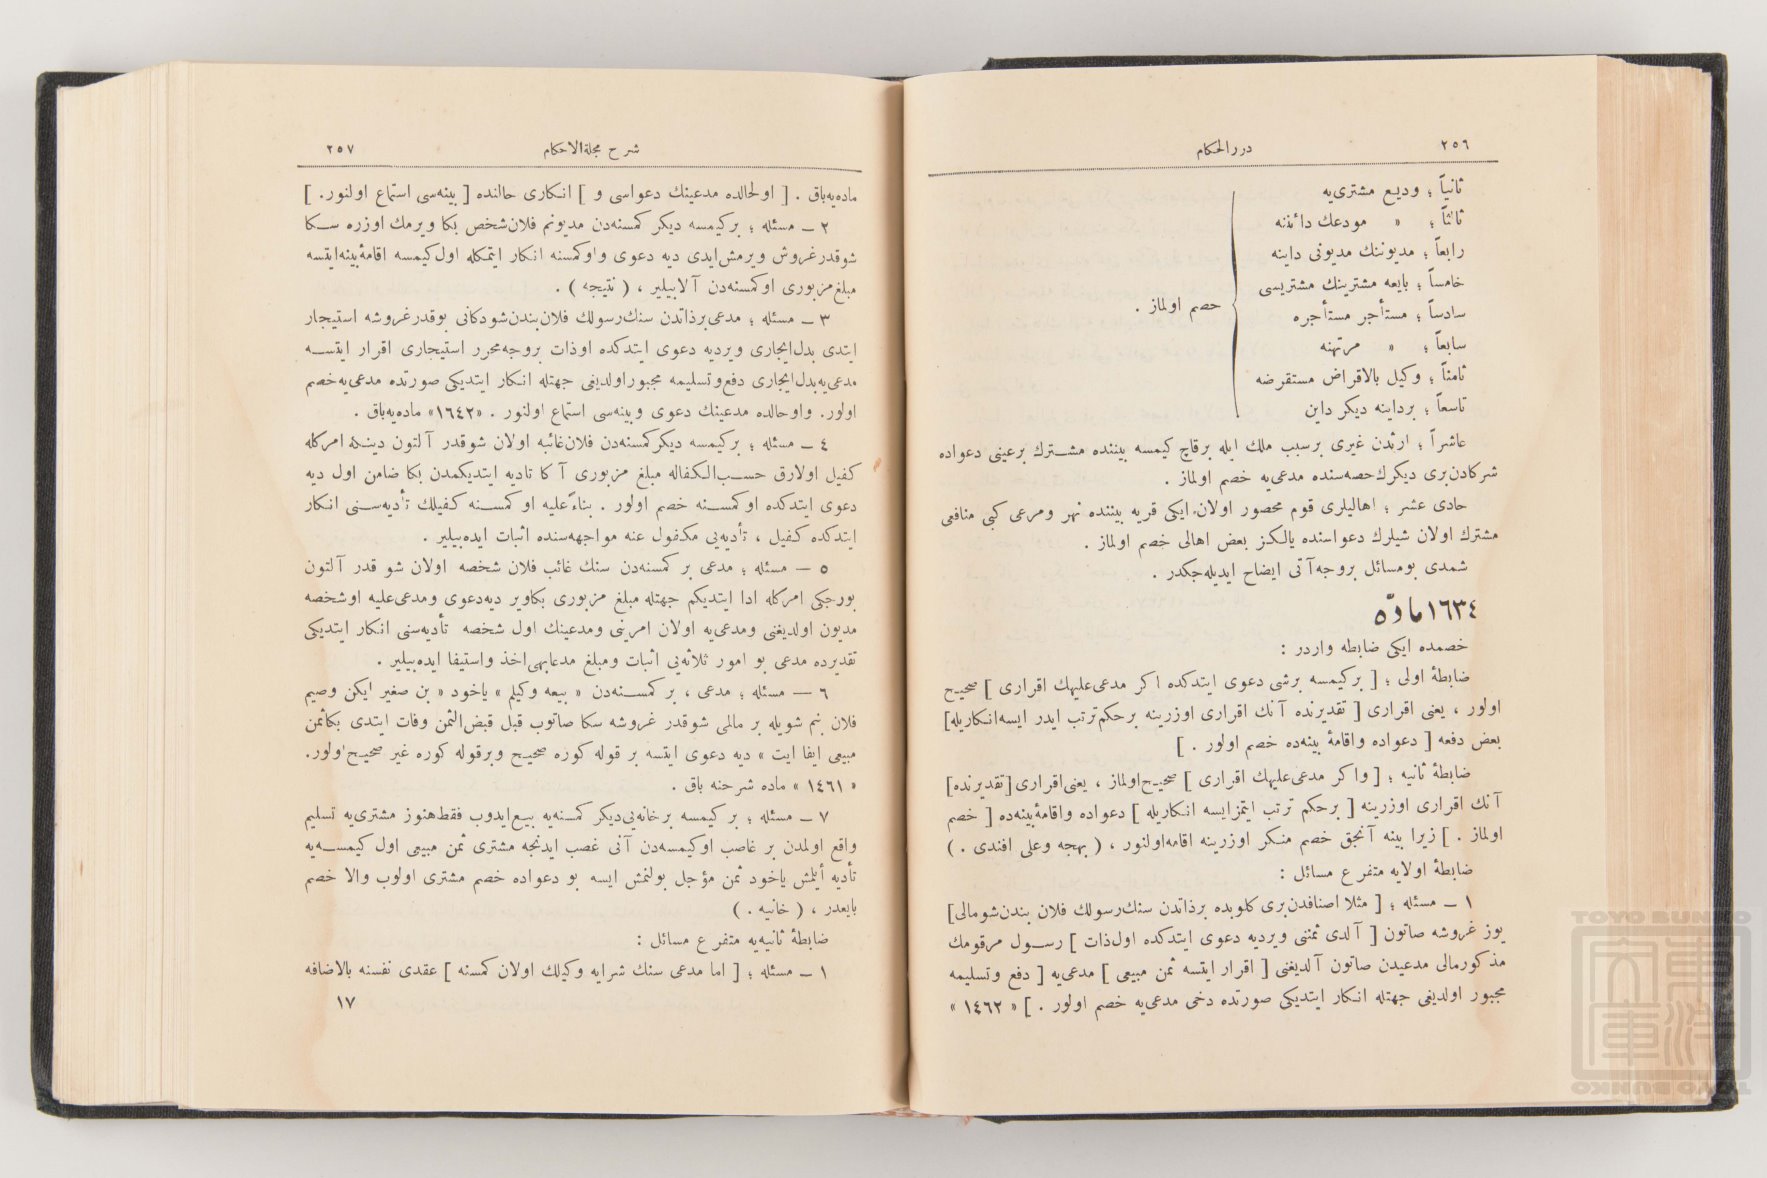 ٢٥٦
درر الحكام
ثانياً ؛ وديع مشترىيه
ثالثاً ؛ « مودعك دائننه
رابعاً ؛ مديوننك مديونى داينه
خامساً ؛ بايعه مشترينك مشتريسى
سادساً ؛ مستأجر مستأجره
سابعاً ؛ « مرتهنه
ثامناً ؛ وكيل بالاقراض مستقرضه
تاسعاً ؛ برداينه ديكر داين
خصم اولماز .
عاشراً ؛ ارثدن غيرى برسبب ملك ايله برقاچ كيمسه بيننده مشترك برعينى دعواده
شركادن برى ديكرك حصه‌سنده مدعى‌يه خصم اولماز .
حادى عشر ؛ اهاليلرى قوم محصور اولان ايكى قريه بيننده نهر ومرعى كبى منافعى
مشترك اولان شيلرك دعواسنده يالكز بعض اهالى خصم اولماز .
شمدى بومسائل بروجه آتى ايضاح ايديله‌جكدر .
١٦٣٤ مادّه
خصمده ايكى ضابطه واردر :
ضابطهٔ اولى ؛ [ بركيمسه برشى دعوى ايتدكده اكر مدعى‌عليهك اقرارى ] صحيح
اولور ، يعنى اقرارى [ تقديرنده آنك اقرارى اوزرينه برحكم ترتب ايدر ايسه انكاريله]
بعض دفعه [ دعواده واقامهٔ بينه‌ده خصم اولور . ]
ضابطهٔ ثانيه ؛ [ واكر مدعى‌عليهك اقرارى ] صحيح اولماز ، يعنى اقرارى [ تقديرنده]
آنك اقرارى اوزرينه [ برحكم ترتب ايتمزايسه انكاريله ] دعواده واقامهٔ بينه‌ده [ خصم
اولماز . ] زيرا بينه آنجق خصم منكر اوزرينه اقامه اولنور ، ( بهجه وعلى افندى . )
ضابطهٔ اولايه متفرع مسائل :
١ ــ مسئله ؛ [ مثلا اصنافدن برى كلوبده برذاتدن سنك رسولك فلان بندن شومالى]
يوز غروشه صاتون [ آلدى ثمننى ويرديه دعوى ايتدكده اول ذات ] رسول مرقومك
مذكور مالى مدعيدن صاتون آلديغنى [ اقرار ايتسه ثمن مبيعى ] مدعى‌يه [ دفع وتسليمه
مجبور اولديغى جهتله انكار ايتديكى صورتده دخى مدعى‌يه خصم اولور . ] « ١٤٦٢ »
شرح مجلة الاحكام
٢٥٧
ماده‌يه باق . [ اولحالده مدعينك دعواسى و ] انكارى حالنده [ بينه‌سى استماع اولنور. ]
٢ ــ مسئله ؛ بركيمسه ديكر كمسنه‌دن مديونم فلان شخص بكا ويرمك اوزره سكا
شوقدر غروش ويرمش ايدى ديه دعوى واوكمسنه انكار ايتمكله اول كيمسه اقامهٔ بينه ايتسه
مبلغ مزبورى اوكمسنه‌دن آلابيلير ، ( نتيجه ) .
٣ ــ مسئله ؛ مدعى برذاتدن سنك رسولك فلان بندن شودكانى بوقدر غروشه استيجار
ايتدى بدل ايجارى ويرديه دعوى ايتدكده اوذات بروجه محرر استيجارى اقرار ايتسه
مدعى‌يه بدل ايجارى دفع وتسليمه مجبور اولديغى جهتله انكار ايتديكى صورتده مدعى‌يه خصم
اولور. واوحالده مدعينك دعوى وبينه‌سى استماع اولنور . «١٦٤٢» ماده‌يه باق .
٤ ــ مسئله ؛ بركيمسه ديكر كمسنه‌دن فلان غائبه اولان شوقدر آلتون دينكه امركله
كفيل اولارق حسب الكفاله مبلغ مزبورى آكا تاديه ايتديكمدن بكا ضامن اول ديه
دعوى ايتدكده اوكمسنه خصم اولور . بناءً عليه اوكمسنه كفيلك تأديه‌سنى انكار
ايتدكده كفيل ، تأديه‌يى مكفول عنه مواجهه‌سنده اثبات ايده‌بيلير .
٥ ــ مسئله ؛ مدعى بر كمسنه‌دن سنك غائب فلان شخصه اولان شو قدر آلتون
بورجكى امركله ادا ايتديكم جهتله مبلغ مزبورى بكاوير ديه دعوى ومدعى عليه اوشخصه
مديون اولديغنى ومدعى‌يه اولان امرينى ومدعينك اول شخصه تأديه‌سنى انكار ايتديكى
تقديرده مدعى بو امور ثلاثه‌يى اثبات ومبلغ مدعابهى اخذ واستيفا ايده‌بيلير .
٦ ــ مسئله ؛ مدعى ، بر كمسنه‌دن « بيعه وكيلم » ياخود « بن صغير ايكن وصيم
فلان بنم شويله بر مالمى شوقدر غروشه سكا صاتوب قبل قبض الثمن وفات ايتدى بكا ثمن
مبيعى ايفا ايت » ديه دعوى ايتسه بر قوله كوره صحيح وبرقوله كوره غير صحيح اولور.
« ١٤٦١ » ماده شرحنه باق .
٧ ــ مسئله ؛ بر كيمسه برخانه‌يى ديكر كمسنه‌يه بيع ايدوب فقط هنوز مشترى‌يه تسليم
واقع اولمدن بر غاصب اوكيمسه‌دن آنى غصب ايدنجه مشترى ثمن مبيعى اول كيمسه‌يه
تأديه ايلمش ياخود ثمن مؤجل بولنمش ايسه بو دعواده خصم مشترى اولوب والا خصم
بايعدر ، ( خانيه . )
ضابطهٔ ثانيه‌يه متفرع مسائل :
١ ــ مسئله ؛ [ اما مدعى سنك شرايه وكيلك اولان كمسنه ] عقدى نفسنه بالاضافه
١٧
TOYO BUNKO
東洋文庫
TOYO BUNKO